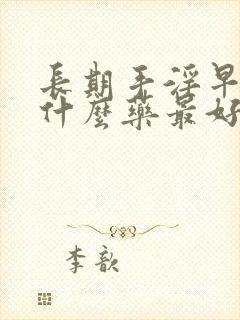 長期手淫早
什麼藥最好
李歆